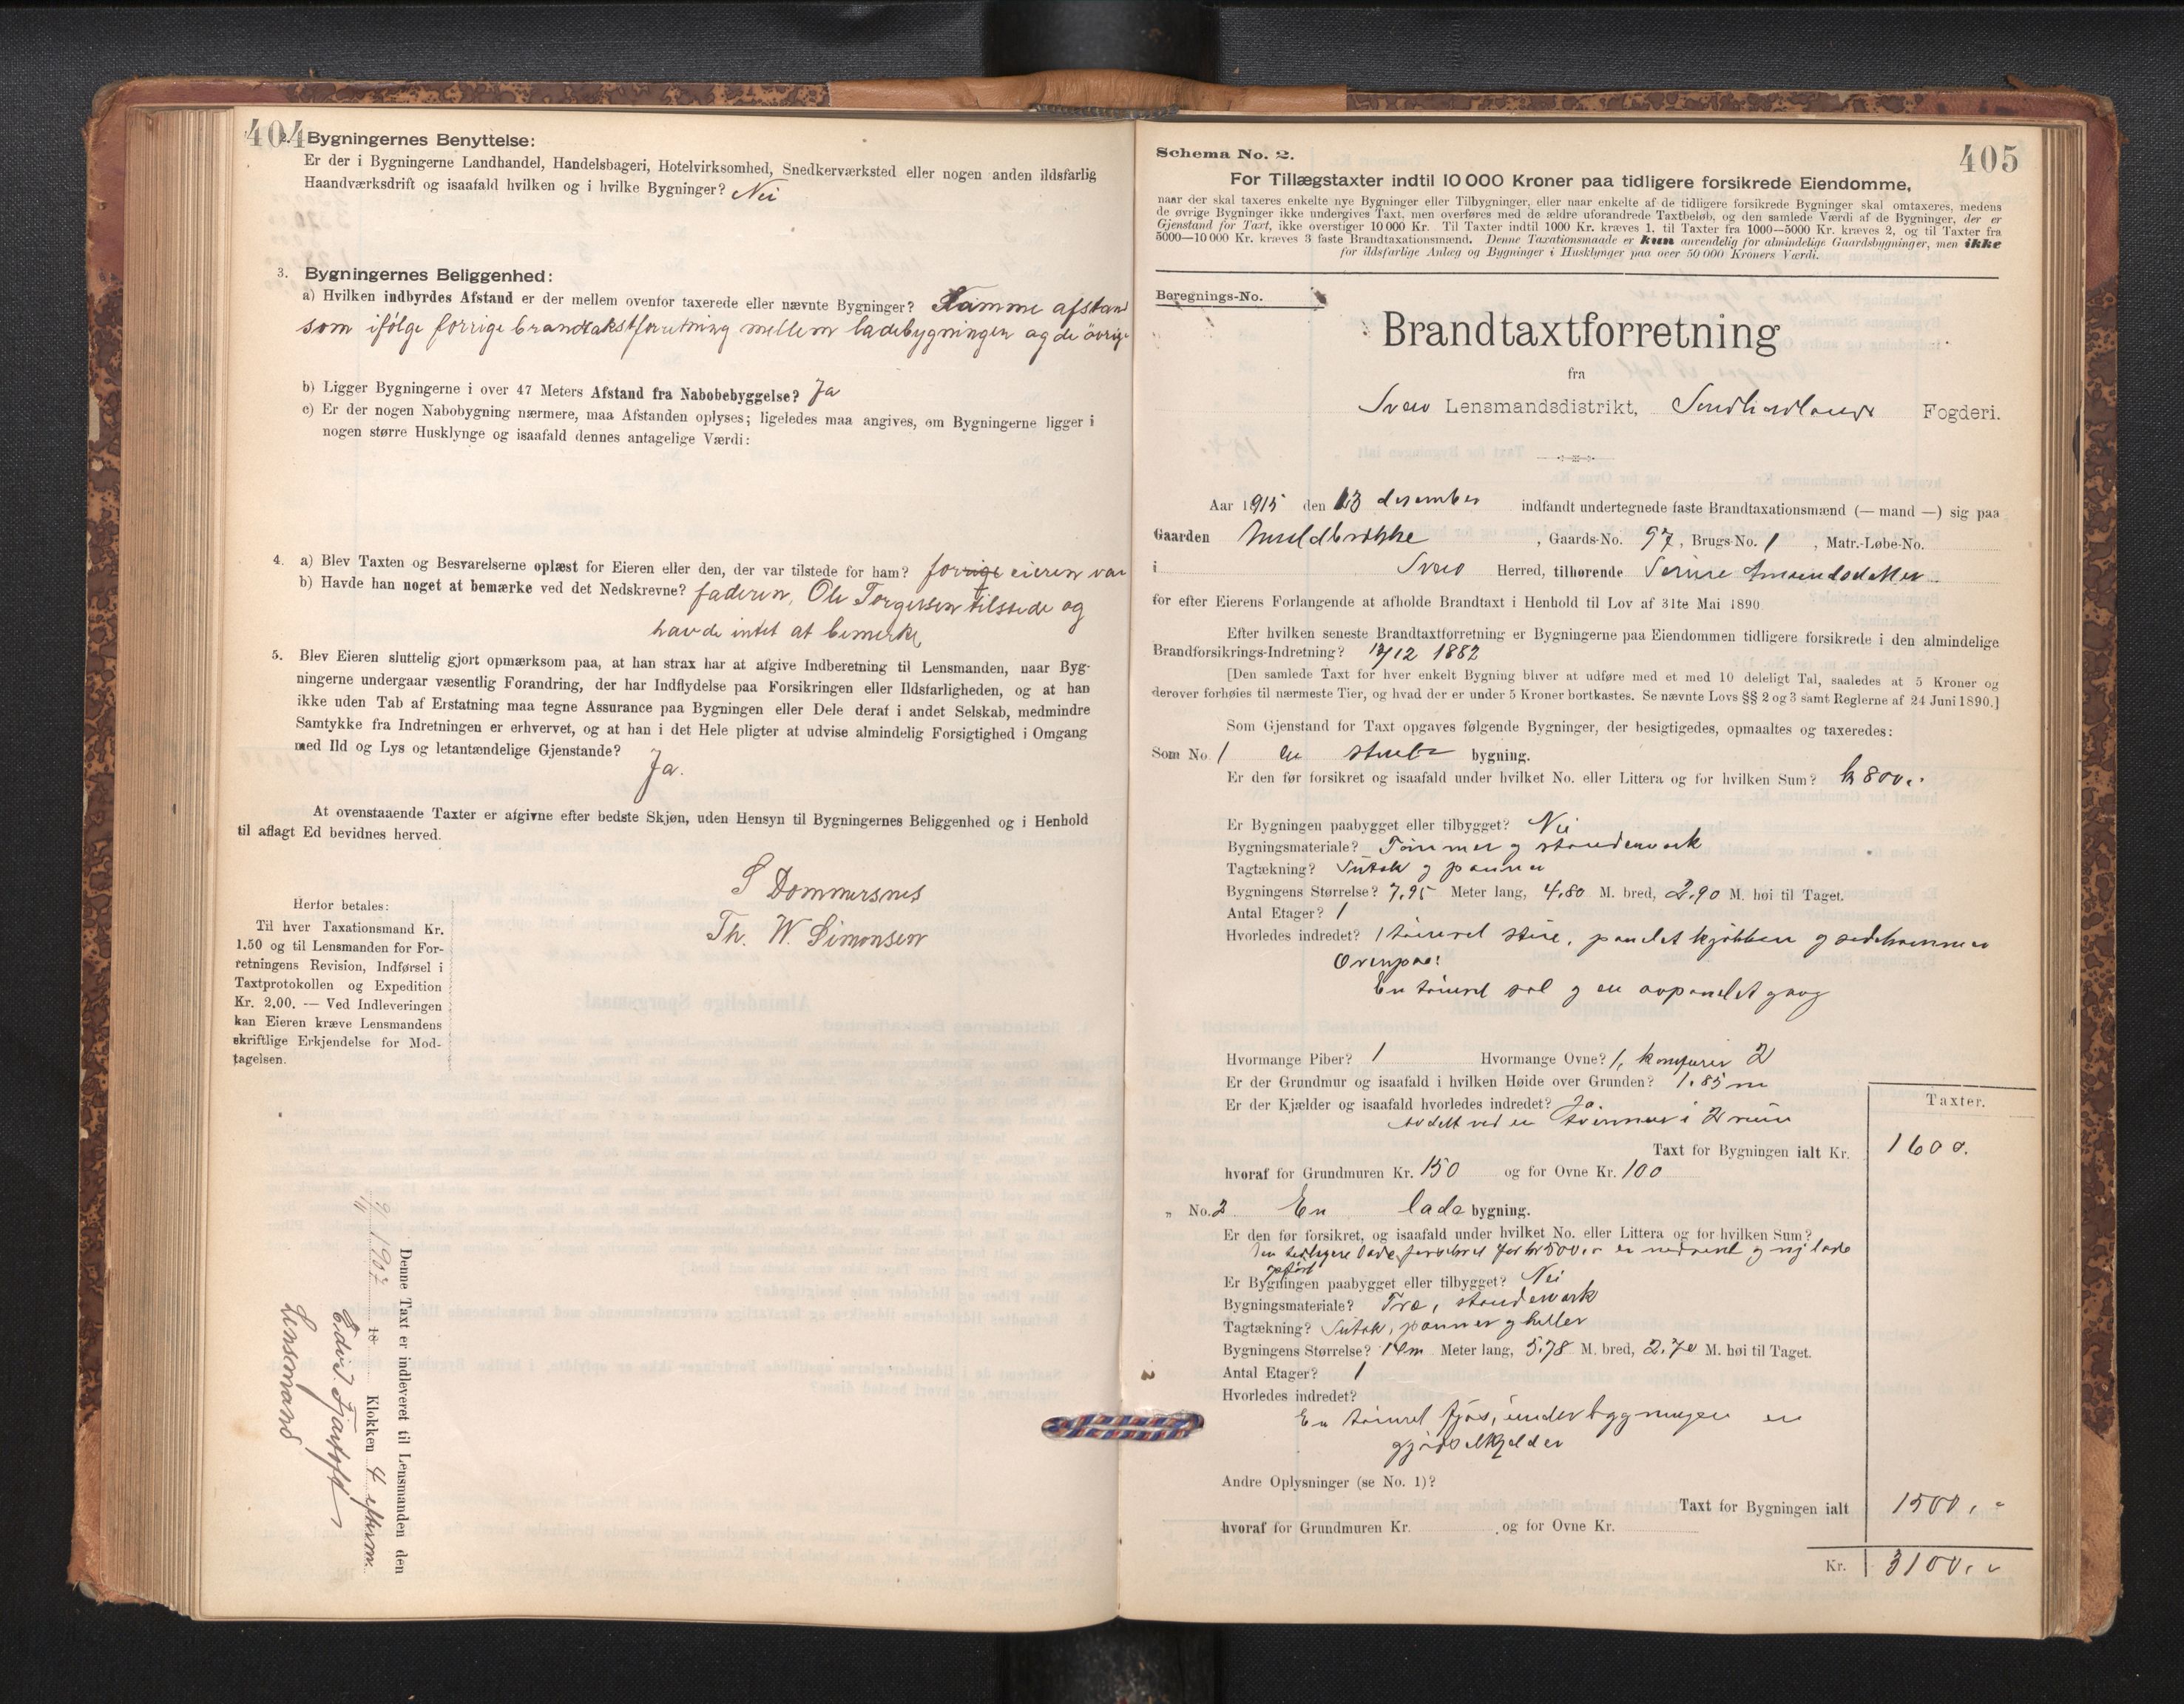 404
2. Bygningernes Benyttelse:
Er der i Bygningerne Landhandel, Handelsbageri, Hotelvirksomhed, Snedkerværksted eller nogen anden ildsfarlig
Haandværksdrift og isaafald hvilken og i hvilke Bygninger? Nei
3. Bygningernes Beliggenhed:
a) Hvilken indbyrdes Afstand er der mellem ovenfor taxerede eller nævnte Bygninger? Samme afstand
som ifølge forrige brandtakstforretning mellem ladebygningen og de øvrige
b) Ligger Bygningerne i over 47 Meters Afstand fra Nabobebyggelse? Ja
c) Er der nogen Nabobygning nærmere, maa Afstanden oplyses; ligeledes maa angives, om Bygningerne ligger i
nogen større Husklynge og isaafald dennes antagelige Værdi:
4. a) Blev Taxten og Besvarelserne oplæst for Eieren eller den, der var tilstede for ham? forrige eieren var
b) Havde han noget at bemærke ved det Nedskrevne? faderen, Ole Torgersen tilstede og
havde intet at bemerke
5. Blev Eieren sluttelig gjort opmærksom paa, at han strax har at afgive Indberetning til Lensmanden, naar Byg-
ningerne undergaar væsentlig Forandring, der har Indflydelse paa Forsikringen eller Ildsfarligheden, og at han
ikke uden Tab af Erstatning maa tegne Assurance paa Bygningen eller Dele deraf i andet Selskab, medmindre
Samtykke fra Indretningen er erhvervet, og at han i det Hele pligter at udvise almindelig Forsigtighed i Omgang
med Ild og Lys og letantændelige Gjenstande?
Ja.
At ovenstaaende Taxter er afgivne efter bedste Skjøn, uden Hensyn til Bygningernes Beliggenhed og i Henhold
til aflagt Ed bevidnes herved.
S Dommersnes
Th. W. Simonsen
Herfor betales:
Til hver Taxationsmand Kr.
1.50 og til Lensmanden for For-
retningens Revision, Indførsel i
Taxtprotokollen og Expedition
Kr. 2.00. — Ved Indleveringen
kan Eieren kræve Lensmandens
skriftlige Erkjendelse for Mod-
tagelsen.
Denne Taxt er indleveret til Lensmanden den
9/11 1907 18 Klokken 4 efterm.
Lensmand
405
Schema No. 2.
For Tillægstaxter indtil 10 000 Kroner paa tidligere forsikrede Eiendomme,
naar der skal taxeres enkelte nye Bygninger eller Tilbygninger, eller naar enkelte af de tidligere forsikrede Bygninger skal omtaxeres, medens
de øvrige Bygninger ikke undergives Taxt, men overføres med de ældre uforandrede Taxtbeløb, og den samlede Værdi af de Bygninger, der er
Gjenstand for Taxt, ikke overstiger 10 000 Kr. Til Taxter indtil 1000 Kr. kræves 1, til Taxter fra 1000—5000 Kr. kræves 2, og til Taxter fra
5000—10 000 Kr. kræves 3 faste Brandtaxationsmænd. Denne Taxationsmaade er kun anvendelig for almindelige Gaardsbygninger, men ikke
for ildsfarlige Anlæg og Bygninger i Husklynger paa over 50 000 Kroners Værdi.
Beregnings-No.
Brandtaxtforretning
fra
Sveo Lensmandsdistrikt, Søndhordlands Fogderi.
Aar 1915 den 13 desember indfandt undertegnede faste Brandtaxationsmænd (— mand —) sig paa
Gaarden , Gaards-No. 97, Brugs-No. 1 , Matr.-Løbe-No.
i Sveo Herred, tilhørende Serine Amundsdatter
for efter Eierens Forlangende at afholde Brandtaxt i Henhold til Lov af 31te Mai 1890.
Efter hvilken seneste Brandtaxtforretning er Bygningerne paa Eiendommen tidligere forsikrede i den almindelige
Brandforsikrings-Indretning? 12/12 1882
[Den samlede Taxt for hver enkelt Bygning bliver at udføre med et med 10 deleligt Tal, saaledes at 5 Kroner og
derover forhøies til nærmeste Tier, og hvad der er under 5 Kroner bortkastes. Se nævnte Lovs §§ 2 og 3 samt Reglerne af 24 Juni 1890.]
Som Gjenstand for Taxt opgaves følgende Bygninger, der besigtigedes, opmaaltes og taxeredes:
Som No. 1 en stue bygning.
Er den før forsikret og isaafald under hvilket No. eller Littera og for hvilken Sum? kr 800.-
Er Bygningen paabygget eller tilbygget? Nei
Bygningsmateriale? Tømmer og standerverk
Tagtækning? Sutak og panner
Bygningens Størrelse? 7,95 Meter lang, 4,80 M. bred, 2.90 M. høi til Taget.
Antal Etager? 1
Hvorledes indredet? 1 tømret stue, panelet kjøkken og sidekammer
Ovenpaa:
En tømret sal og en avpanelet gang
Hvormange Piber? 1 Hvormange Ovne? 1, komfurer 2
Er der Grundmur og isaafald i hvilken Høide over Grunden? 1.85 m
Er der Kjælder og isaafald hvorledes indredet? Ja.
Avdelt ved en tvermur i 2 rum
Taxter.
Taxt for Bygningen ialt Kr. 1600.
hvoraf for Grundmuren Kr. 150 og for Ovne Kr. 100
„ No. 2 En lade bygning.
Er den før forsikret, og isaafald under hvilket No. eller Littera og for hvilken Sum?
Den tidligere lade, forsikret for kr 500.- er nedrevet og ny lade
opført
Er Bygningen paabygget eller tilbygget? Nei
Bygningsmateriale? Træ, standerverk
Tagtækning? Sutak, panner og heller
Bygningens Størrelse? Meter lang, 5,78 M. bred, 2.70 M. høi til Taget.
Antal Etager? 1
Hvorledes indredet?
En tømret fjøs, under bygningen en
gjødselkjelder
Andre Oplysninger (se No. 1)?
Taxt for Bygningen ialt 1500,-
hvoraf for Grundmuren Kr. , og for Ovne Kr.
Kr. 3100.-